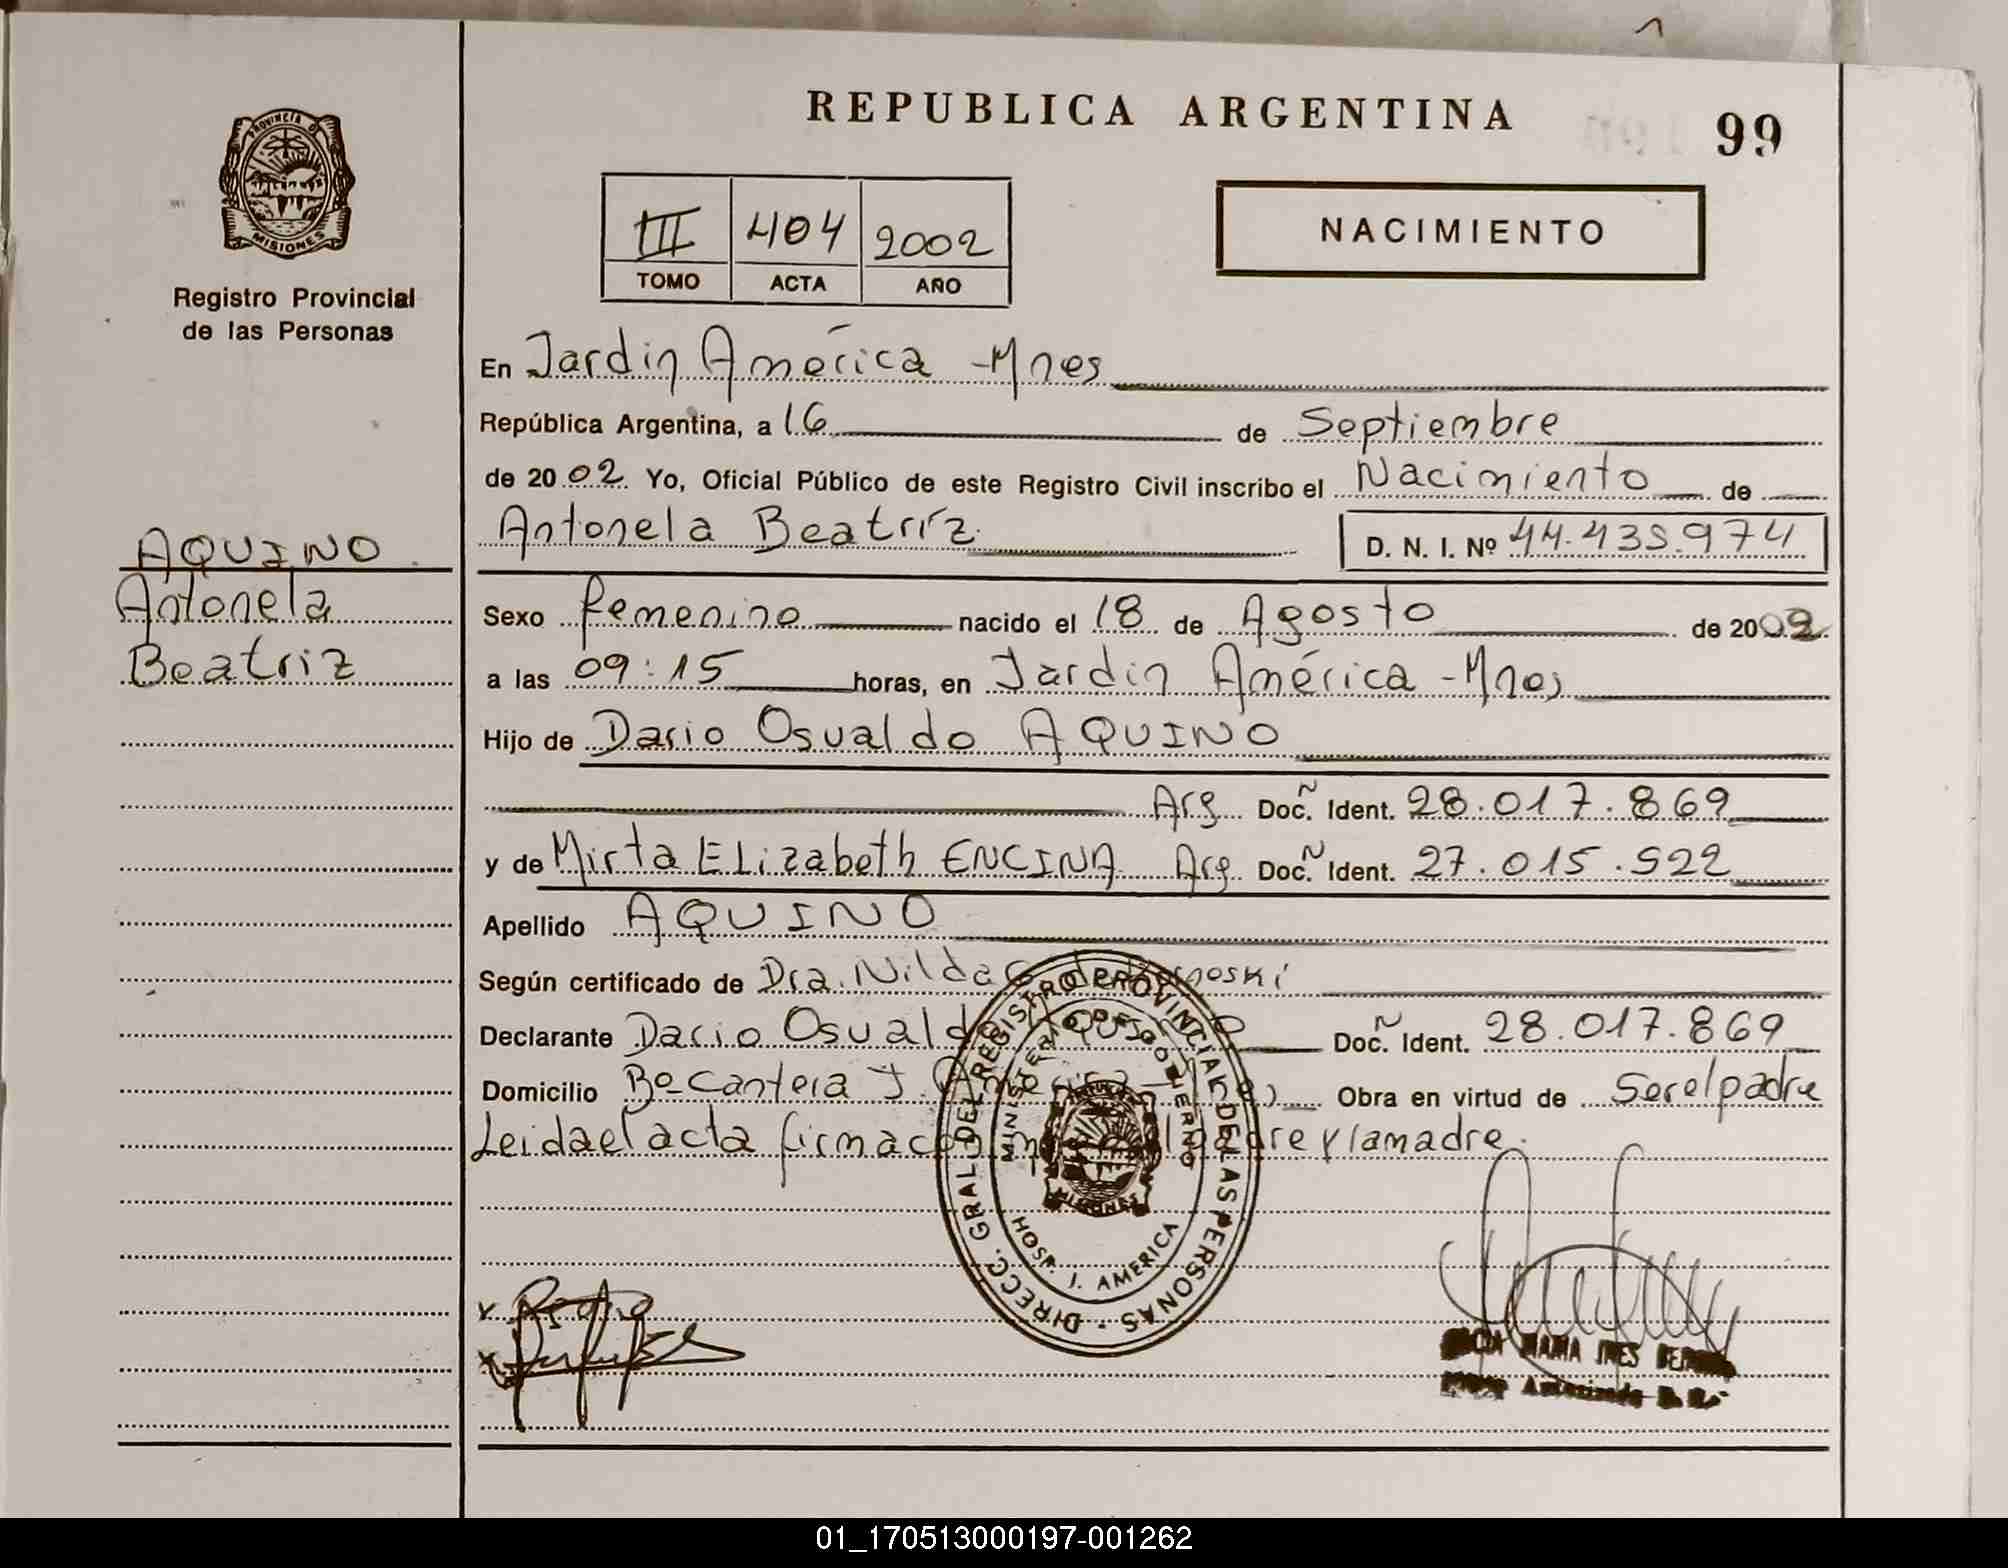 REPUBLICA ARGENTINA
99
PROVINCIA D
MISIONES
Registro Provincial
de las Personas
III 404 2002
TOMO ACTA AÑO
NACIMIENTO
En Jardin América - Mnes
República Argentina, a 16 de Septiembre
de 2002 Yo, Oficial Público de este Registro Civil inscribo el Nacimiento de
Antonela Beatríz D. N. I. Nº 44.435.974
AQUINO
Antonela
Beatriz
Sexo Femenino nacido el 18 de Agosto de 2002
a las 09:15 horas, en Jardin América - Mnes
Hijo de Dario Osvaldo AQUINO
Arg Doc. Ident. 28.017.869
y de Mirta ELizabeth ENCINA Arg Doc. Ident. 27.015.522
Apellido AQUINO
Según certificado de Dra. Nilda
Declarante Dario Osvaldo AQUINO Doc. Ident. 28.017.869
Domicilio Bo Cantera J. América - Mnes Obra en virtud de Ser el padre
Leida el acta firman el padre y la madre.
DIRECC. GRAL. DEL REGISTRO PROVINCIAL DE LAS PERSONAS
MINISTERIO DE GOBIERNO
MISIONES
HOSP. J. AMERICA
MARIA INES
Autorizado
01_170513000197-001262